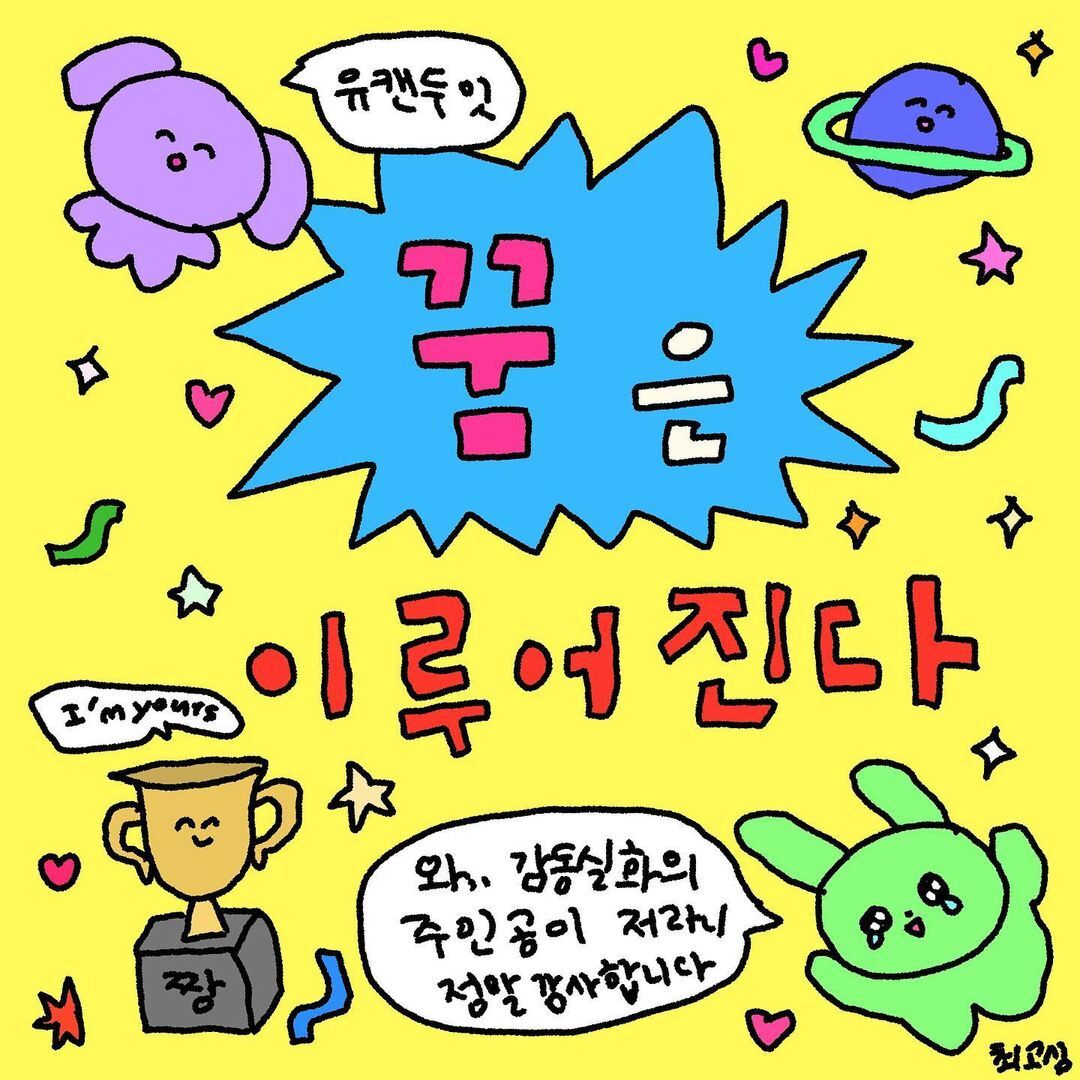 유캔두잇
꿈은
이루어진다
I'm yours
짱
와.. 감동실화의
주인공이 저라니
정말 감사합니다
최고심